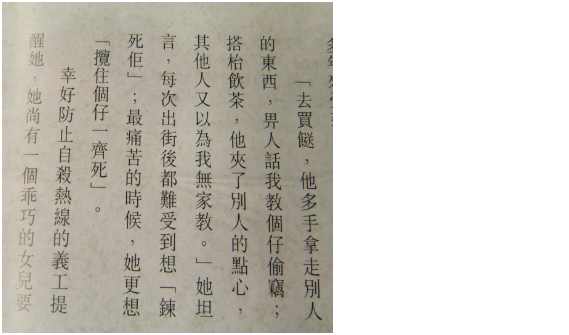 「去買餸，他多手拿走別人
的東西，畀人話我教個仔偷竊；
搭枱飲茶，他夾了別人的點心，
其他人又以為我無家教。」她坦
言，每次出街後都難受到想「鍊
死佢」；最痛苦的時候，她更想
「攬住個仔一齊死」。
幸好防止自殺熱線的義工提
醒她，她尚有一個乖巧的女兒要